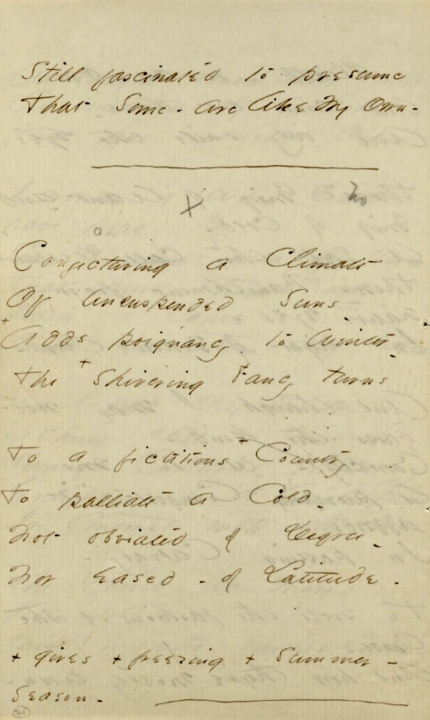 Still fascinated to presume
That Some - are like my own -
Conjecturing a Climate
Of unsuspended Suns -
+ Adds poignancy to Winter -
The + Shivering Fancy turns
To a fictitious + Country
To palliate a Cold -
Not obviated of Degree -
Nor eased - of Latitude -
+ gives + freezing + Summer -
Season -